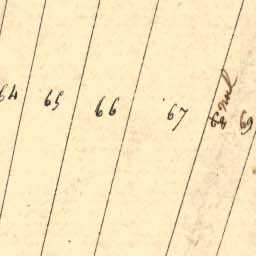 64
65
66
67
69